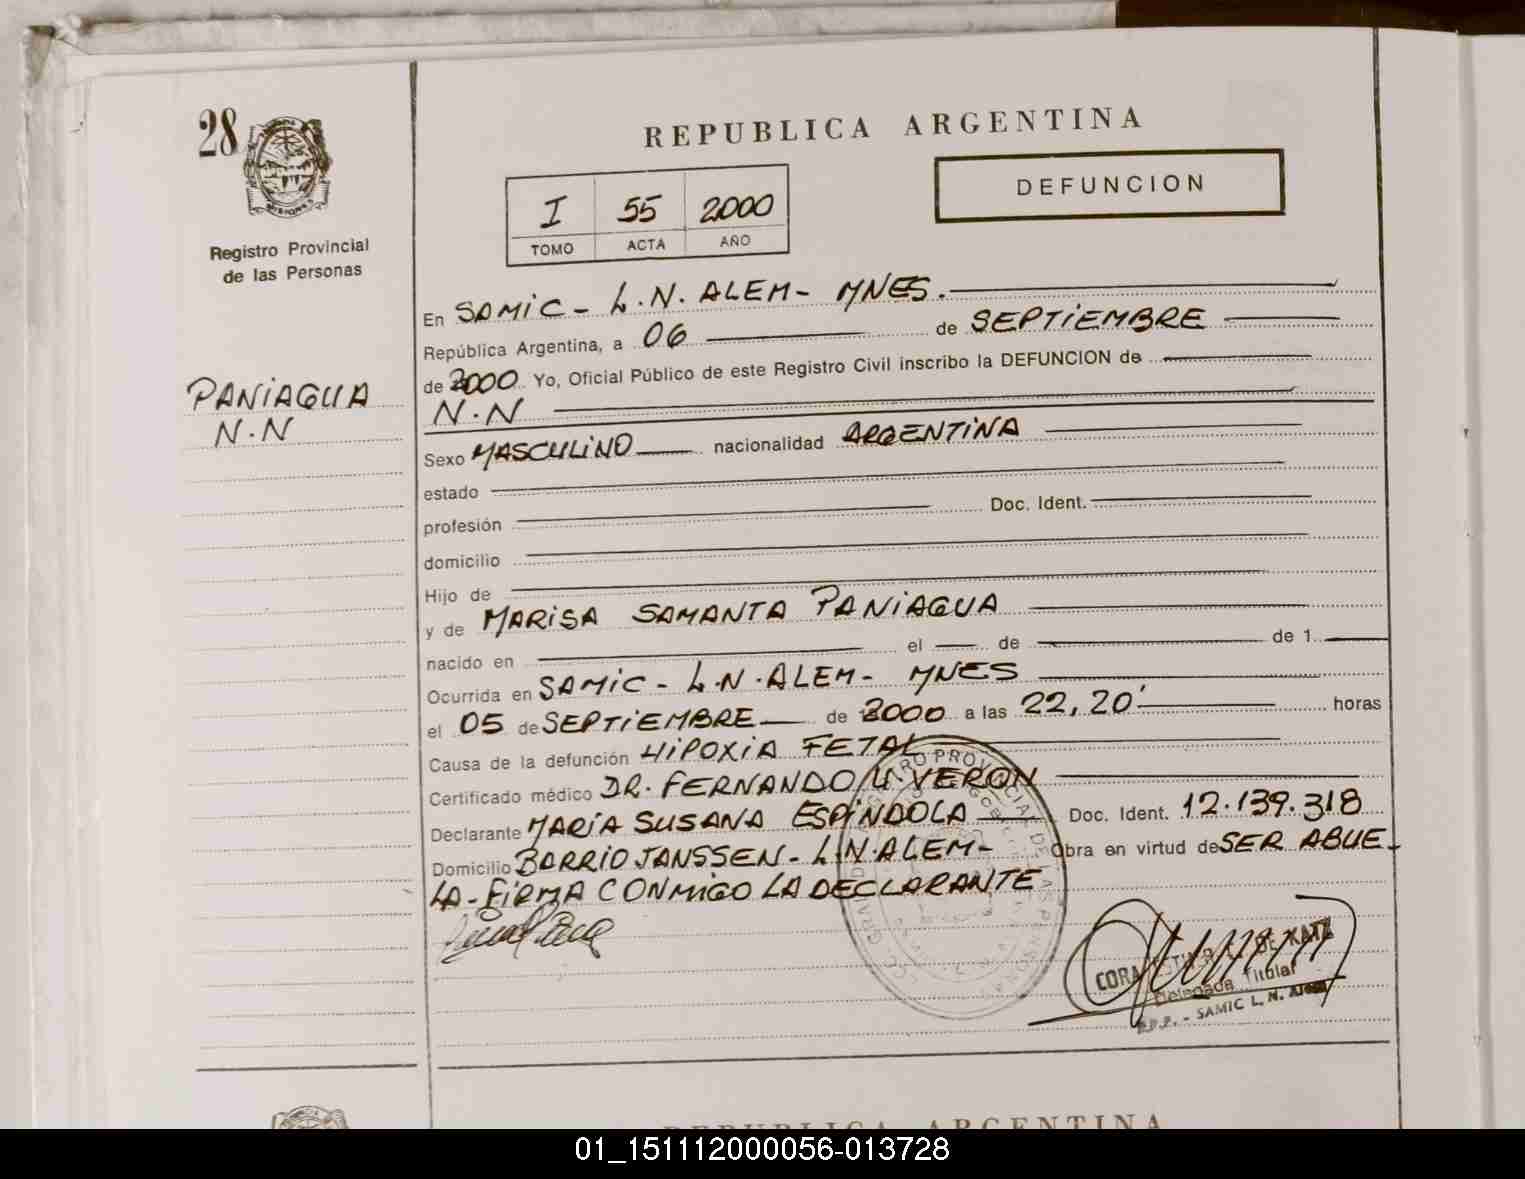 28
REPUBLICA ARGENTINA
DEFUNCION
I 55 2000
TOMO ACTA AÑO
Registro Provincial
de las Personas
PANIAGUA
N.N
En SAMIC - L.N. ALEM - MNES.
República Argentina, a 06 de SEPTIEMBRE
de 2000 Yo, Oficial Público de este Registro Civil inscribo la DEFUNCION de
N.N
Sexo MASCULINO nacionalidad ARGENTINA
estado
profesión Doc. Ident.
domicilio
Hijo de
y de MARISA SAMANTA PANIAGUA
nacido en el de de 1
Ocurrida en SAMIC - L.N. ALEM - MNES
el 05 de SEPTIEMBRE de 2000 a las 22,20' horas
Causa de la defunción HIPOXIA FETAL
Certificado médico DR. FERNANDO VERON
Declarante MARIA SUSANA ESPINDOLA Doc. Ident. 12.139.318
Domicilio BARRIO JANSSEN - L.N. ALEM - Obra en virtud de SER ABUE-
LA - FIRMA CONMIGO LA DECLARANTE
CORA DE KATZ
Delegada Titular
SAMIC L. N. Alem
REPUBLICA ARGENTINA
01_151112000056-013728